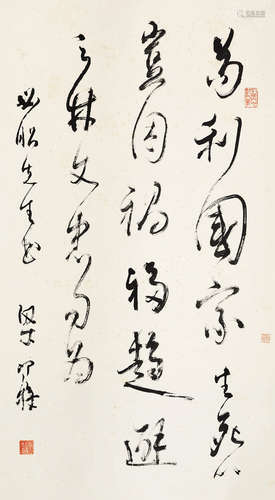 苟利國家生死以
豈因禍福趨避
之林文忠句為
先生書